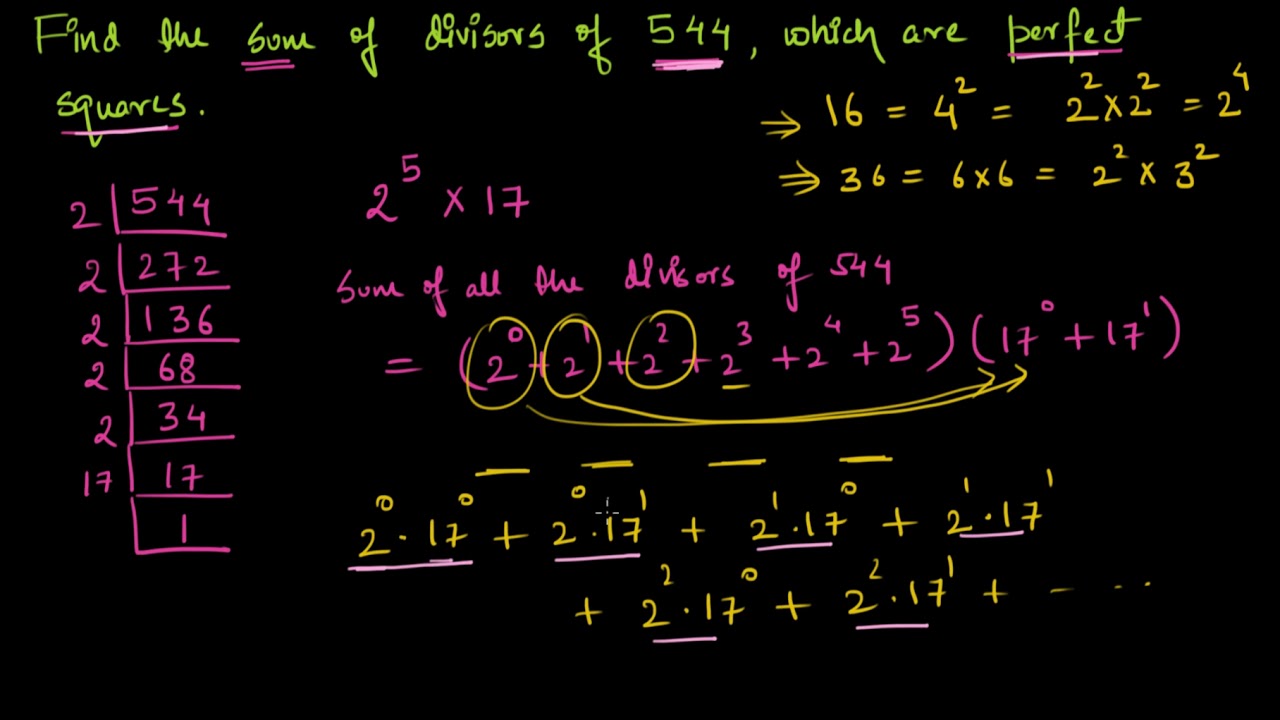 Find the sum of divisors of 544, which are perfect
squares.
⇒ 16 = 4² = 2² × 2² = 2⁴
⇒ 36 = 6×6 = 2² × 3²
2 | 544
2 | 272
2 | 136
2 | 68
2 | 34
17 | 17
1
2⁵ × 17
Sum of all the divisors of 544
= (2⁰ + 2¹ + 2² + 2³ + 2⁴ + 2⁵) (17⁰ + 17¹)
2⁰ · 17⁰ + 2⁰ · 17¹ + 2¹ · 17⁰ + 2¹ · 17¹
+ 2² · 17⁰ + 2² · 17¹ + - - -